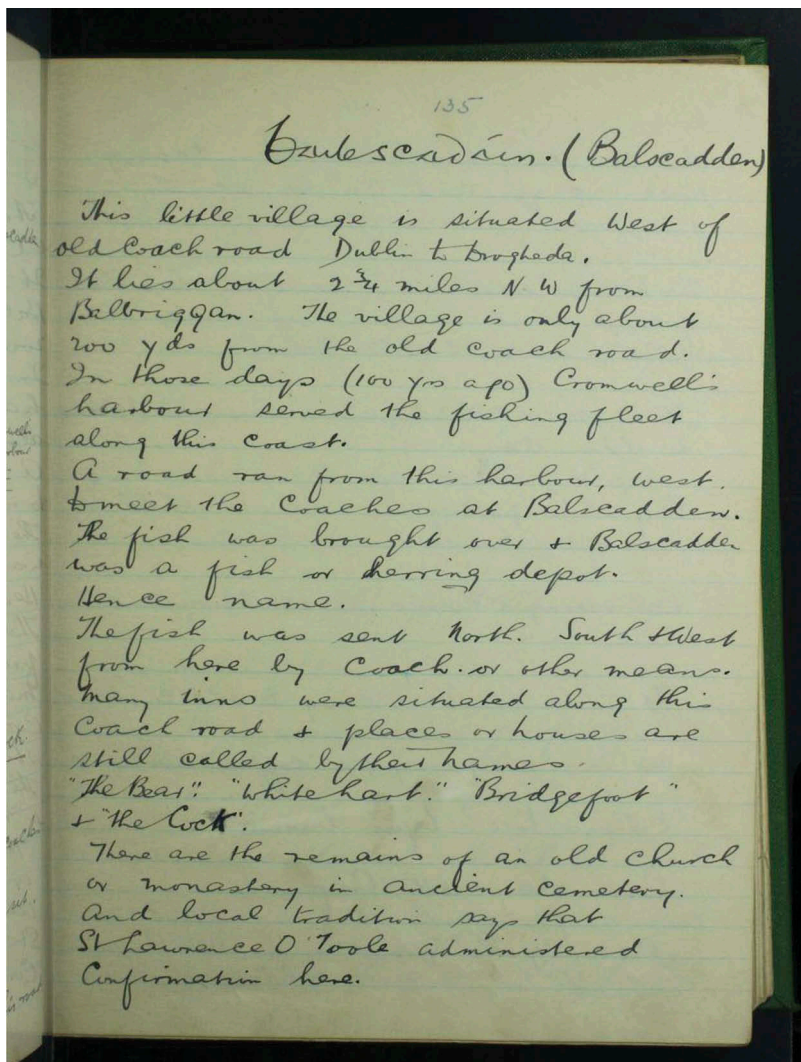 135
Baile scadáin. (Balscadden)
This little village is situated West of
old Coach road Dublin to Drogheda.
It lies about 2 3/4 miles N W from
Balbriggan. The village is only about
200 yds from the old coach road.
In those days (100 yrs ago) Cromwell's
harbour served the fishing fleet
along this coast.
A road ran from this harbour, west.
to meet the Coaches at Balscadden.
The fish was brought over & Balscadden
was a fish or herring depot.
Hence name.
The fish was sent North. South & West
from here by Coach. or other means.
Many inns were situated along this
Coach road & places or houses are
still called by their names.
"The Bear". "White hart." "Bridgefoot"
& "the Cock".
There are the remains of an old church
or monastery in ancient cemetery.
And local tradition says that
St Lawrence O'Toole administered
Confirmation here.